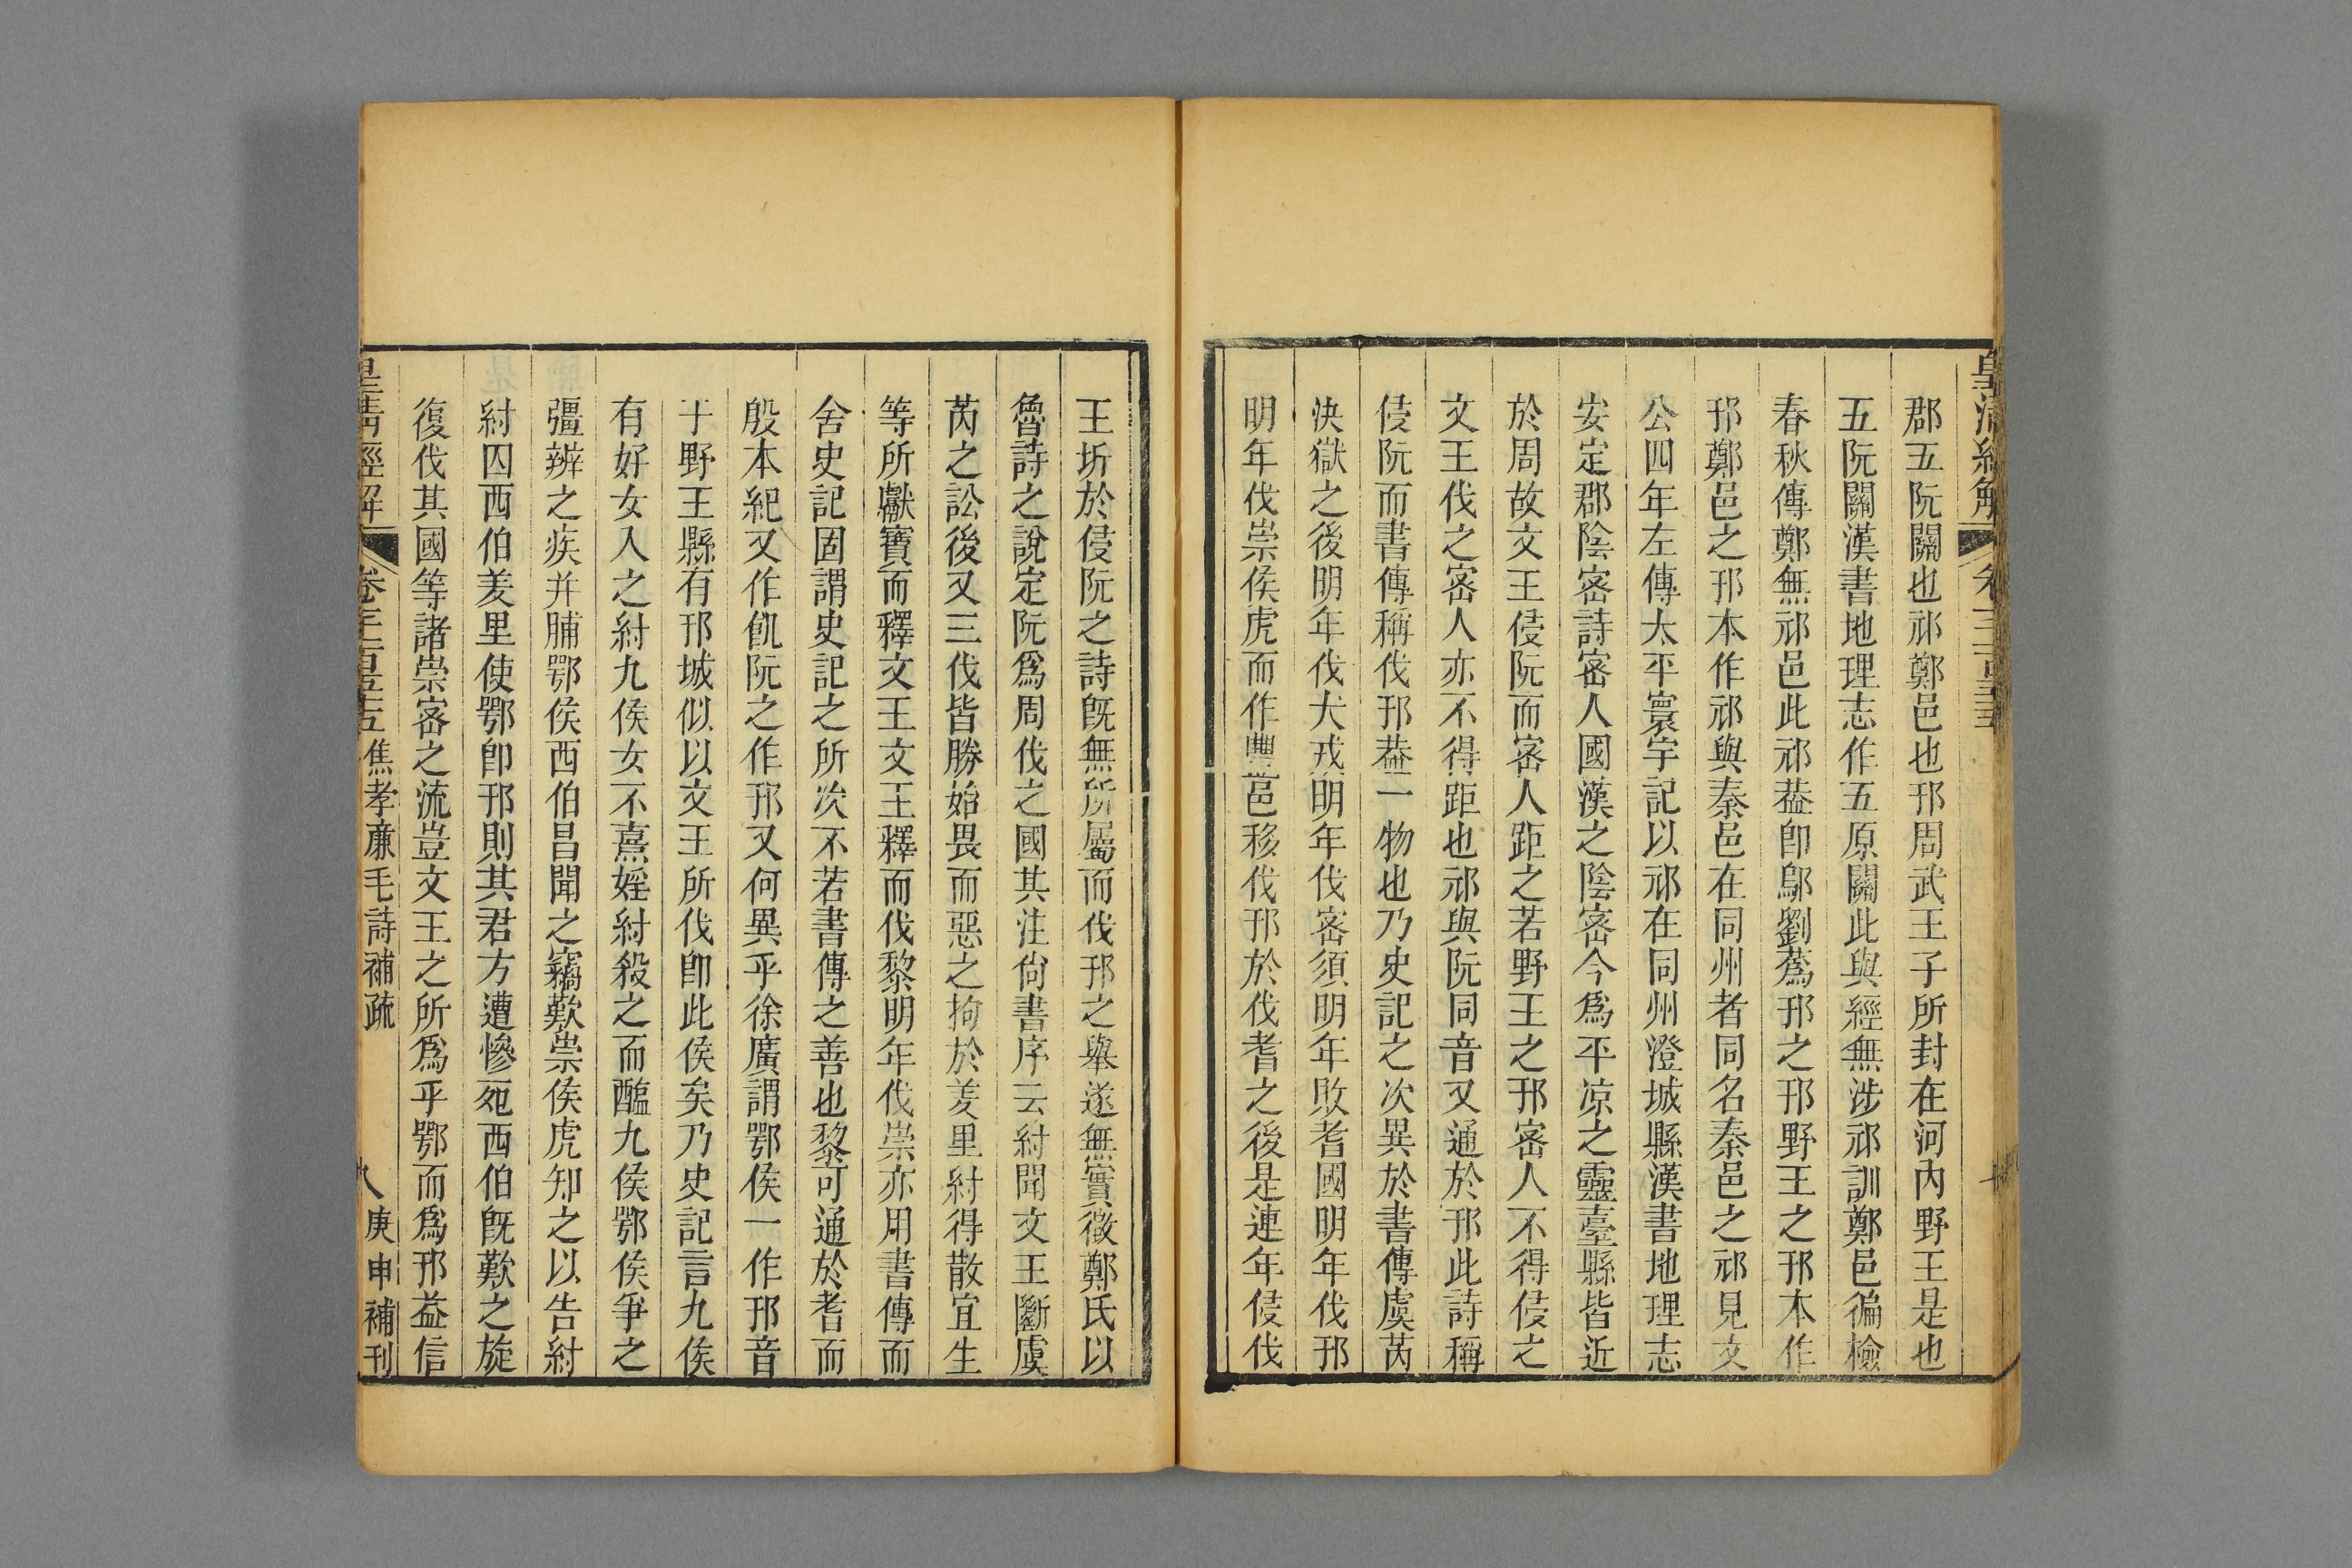 郡五阮關也祁鄭邑也邘周武王子所封在河內野王是也
五阮關漢書地理志作五原關此與經無涉祁訓鄭邑徧檢
春秋傳鄭無祁邑此祁葢卽鄔劉蔿邘之邘野王之邘本作
邘鄭邑之邘本作祁與秦邑在同州者同名秦邑之祁見文
公四年左傳太平寰宇記以祁在同州澄城縣漢書地理志
安定郡陰密詩密人國漢之陰密今爲平凉之靈臺縣皆近
於周故文王侵阮而密人距之若野王之邘密人不得侵之
文王伐之密人亦不得距也祁與阮同音又通於邘此詩稱
侵阮而書傳稱伐邘葢一物也乃史記之次異於書傳虞芮
決獄之後明年伐犬戎明年伐密須明年敗耆國明年伐邘
明年伐崇侯虎而作豐邑移伐邘於伐耆之後是連年侵伐
王圻於侵阮之詩旣無所屬而伐邘之舉遂無實徵鄭氏以
魯詩之說定阮爲周伐之國其注尙書序云紂聞文王斷虞
芮之訟後又三伐皆勝始畏而惡之拘於羑里紂得散宜生
等所獻寶而釋文王文王釋而伐黎明年伐崇亦用書傳而
舍史記固謂史記之所次不若書傳之善也黎可通於耆而
殷本紀又作飢阮之作邘又何異乎徐廣謂鄂侯一作邘音
于野王縣有邘城似以文王所伐卽此侯矣乃史記言九侯
有好女入之紂九侯女不憙婬紂殺之而醢九侯鄂侯爭之
彊辨之疾并脯鄂侯西伯昌聞之竊歎崇侯虎知之以告紂
紂囚西伯羑里使鄂卽邘則其君方遭慘死西伯旣歎之旋
復伐其國等諸崇密之流豈文王之所爲乎鄂而爲邘益信
皇清經解 焦孝廉毛詩補疏 庚申補刊